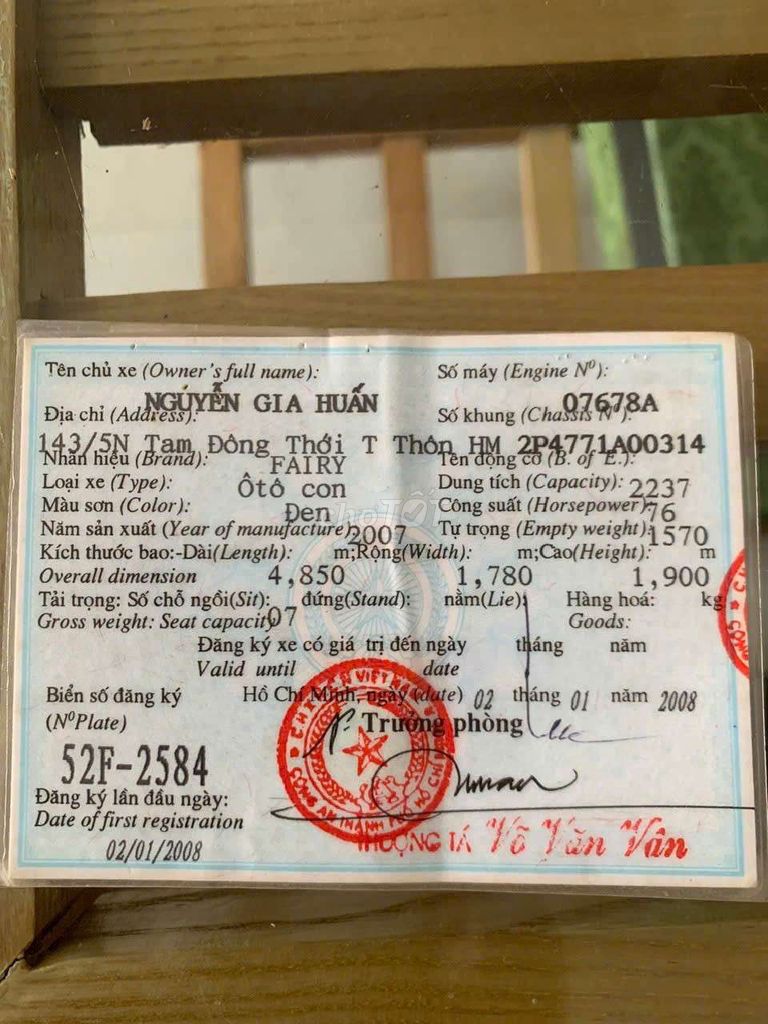 Tên chủ xe (Owner's full name): Số máy (Engine Nº):
NGUYỄN GIA HUẤN 07678A
Địa chỉ (Address): Số khung (Chassis Nº):
143/5N Tam Đông Thới T Thôn HM 2P4771A00314
Nhãn hiệu (Brand): FAIRY Tên động cơ (B. of E.):
Loại xe (Type): Ôtô con Dung tích (Capacity): 2237
Màu sơn (Color): Đen Công suất (Horsepower): 76
Năm sản xuất (Year of manufacture) 2007 Tự trọng (Empty weight): 1570
Kích thước bao:-Dài(Length): m;Rộng(Width): m;Cao(Height): m
Overall dimension 4,850 1,780 1,900
Tải trọng: Số chỗ ngồi(Sit): đứng(Stand): nằm(Lie): Hàng hoá: kg
Gross weight: Seat capacity 07 Goods:
Đăng ký xe có giá trị đến ngày tháng năm
Valid until date
Biển số đăng ký Hồ Chí Minh, ngày (date) 02 tháng 01 năm 2008
(NºPlate) Trưởng phòng
52F-2584
Đăng ký lần đầu ngày:
Date of first registration
02/01/2008
THƯỢNG TÁ Võ Văn Vân
CÔNG AN THÀNH PHỐ HỒ CHÍ
Chợ Tốt